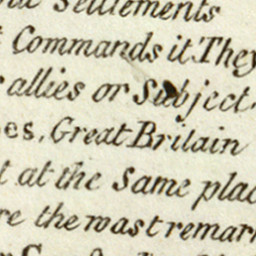 Settlements
Commands it They
allies or Subject
es, Great Britain
t at the Same plac
re the most remar